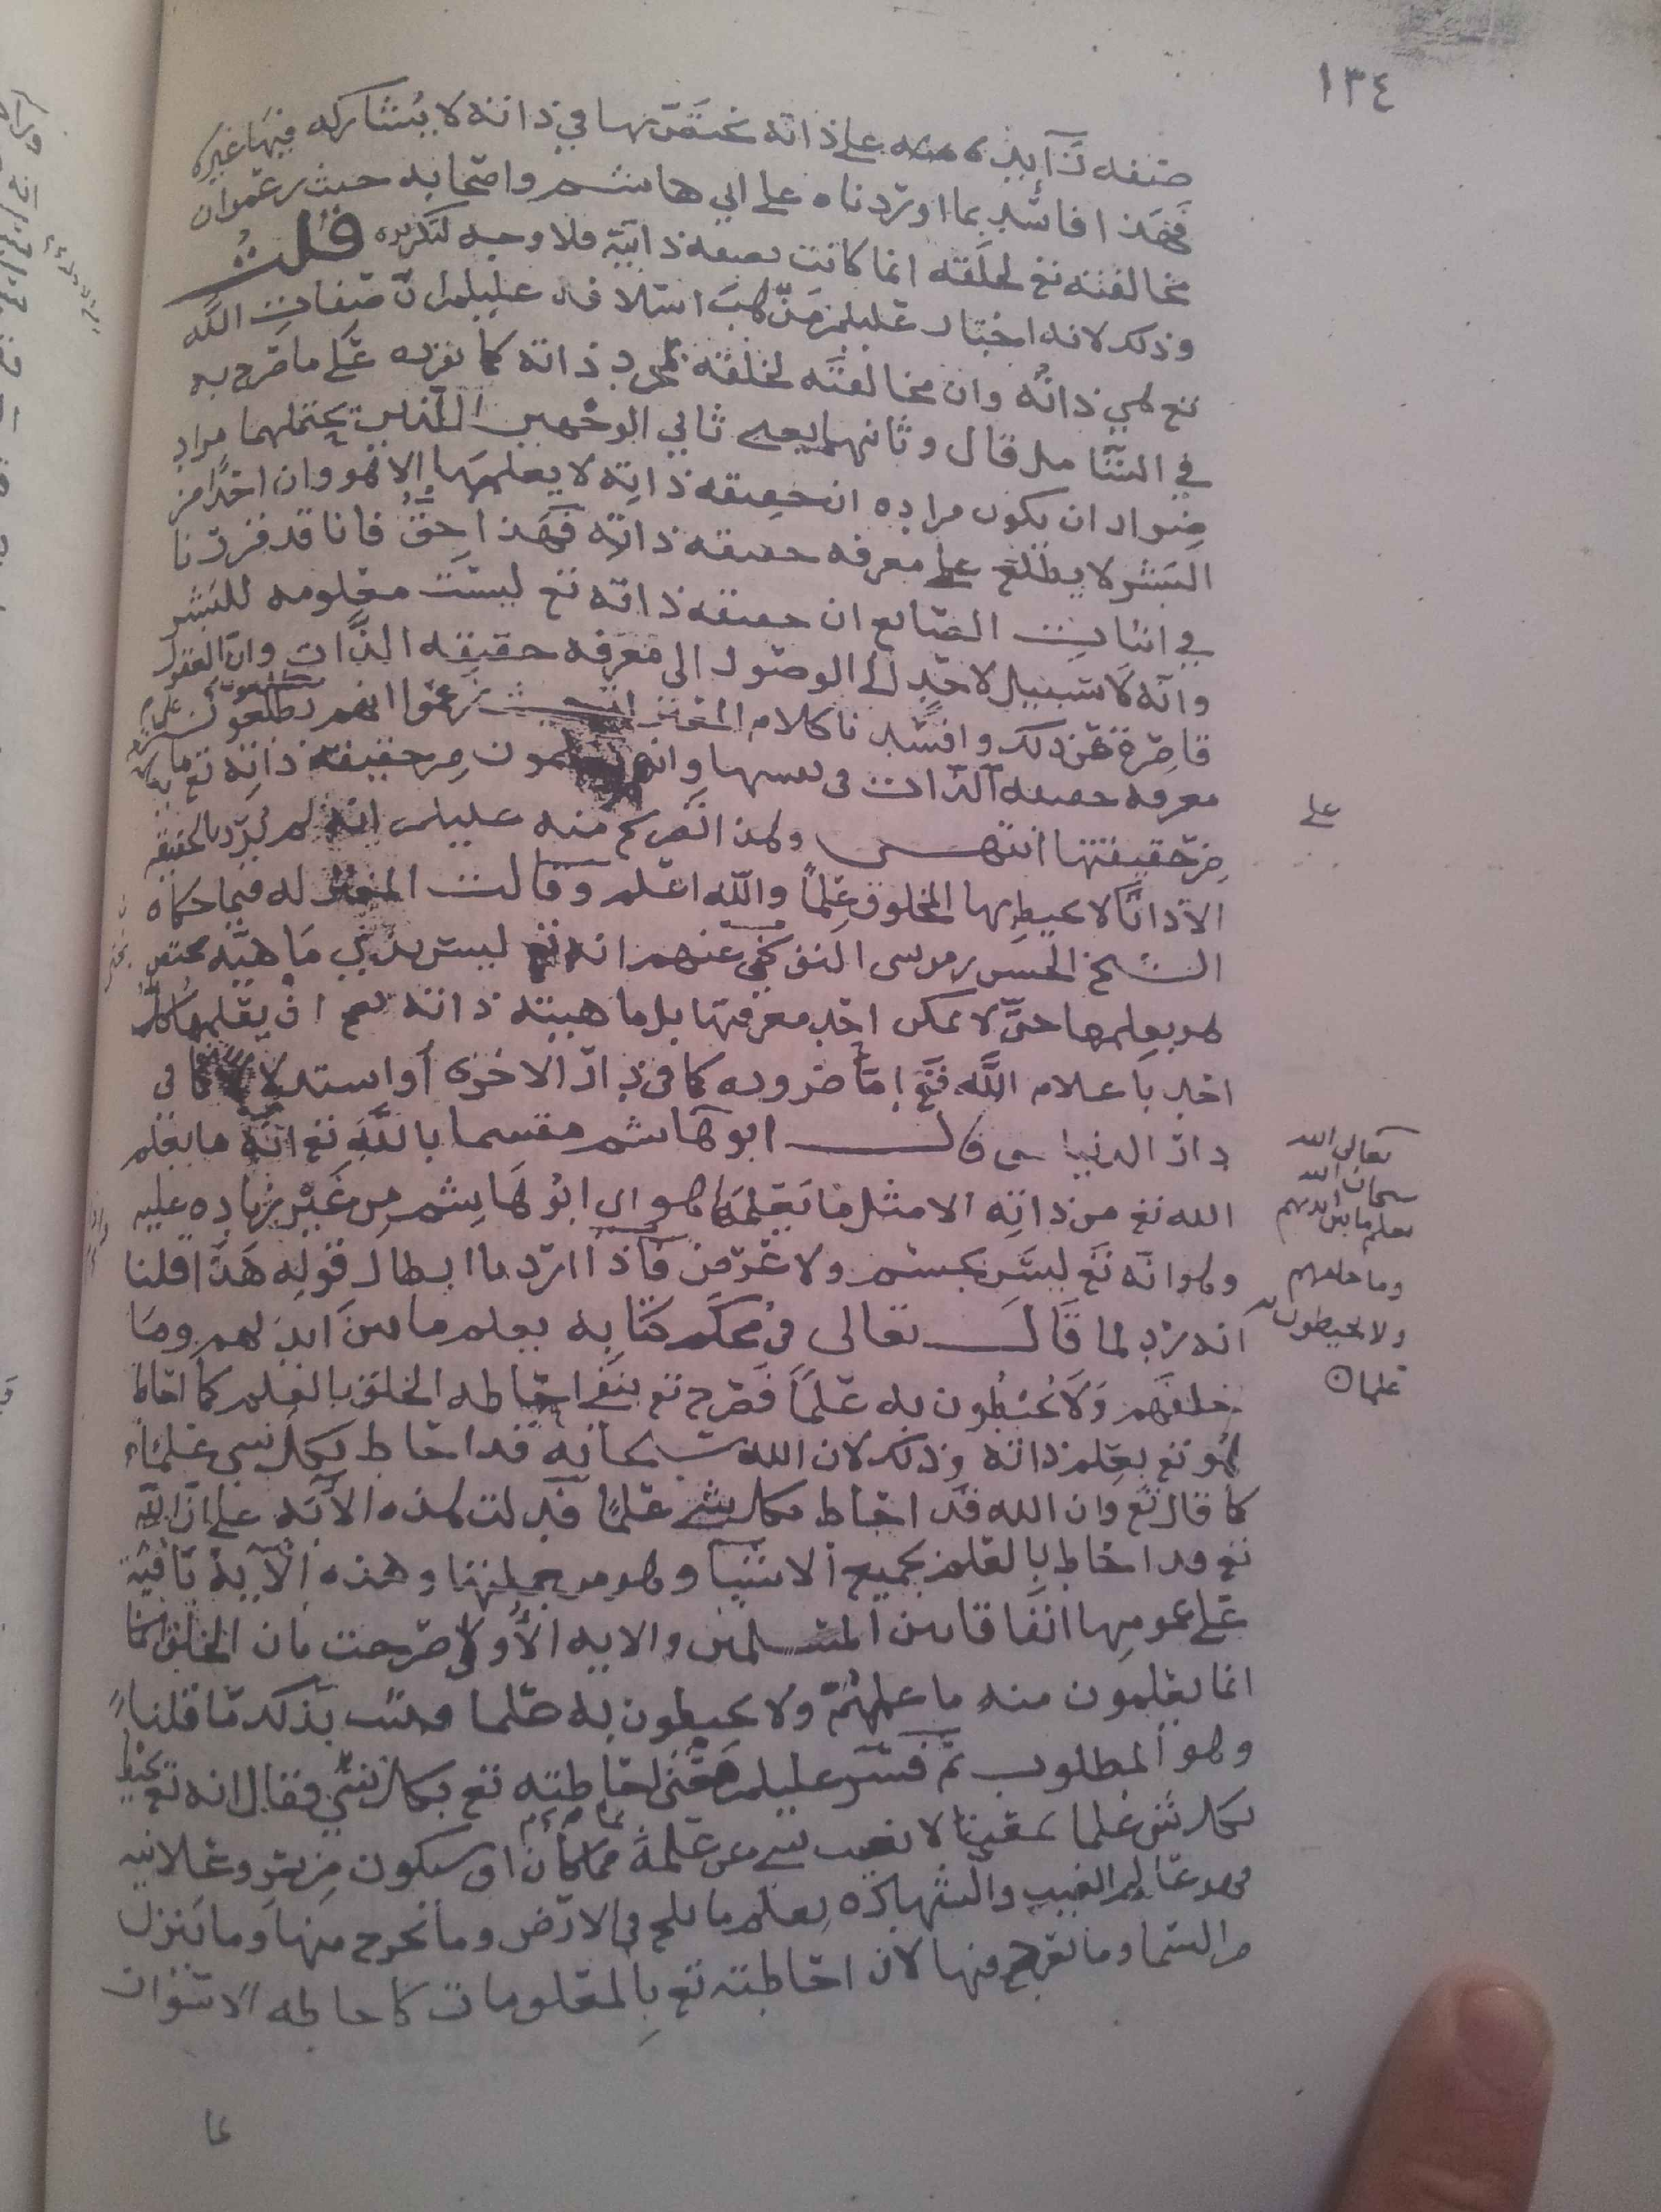 ١٣٤
صفه زايده على ذاته يختص بها في ذاته لا يشاركه فيها غيره
فهذا فاسد بما اوردناه على ابي هاشم واصحابه حيث زعموا ان
مخالفته تع لخلقه انما كانت بصفه ذاتية فلا وجه لتكريره قلت
وذلك لانه اختار عليلم مذهب اسلافه عليلم ان صفات الله
تع هي ذاته وان مخالفته لخلقه بمجرد ذاته كما نقرره على ما صرح به
في قال وثانيهما يعني ثاني الوجهين اللذين يحتملهما مراد
ضرار ان يكون مراده ان حقيقه ذاته لا يعلمها الا هو وان احدا من
البشر لا يطلع على معرفه حقيقه ذاته فهذا حق فانا قد قررنا
في اثبات الصانع ان حقيقه ذاته تع ليست معلومه للبشر
وانه لا سبيل لاحد الى الوصول الى معرفه حقيقه الذات وان العقول
قاصرة عن ذلك وافسدنا كلام المعتزله حيث زعموا انهم يطلعون على
معرفه حقيقه الذات في نفسها وانهم يعلمون من حقيقة ذاته تع ما
من حقيقتها انتهى وهذا تصريح منه عليلم انه لم يرد بالحقيقه
الا ذاتا لا يحيط بها المخلوق علما والله اعلم وقالت المعتزله فيما حكاه
الشيخ الحسن بن موسى النوبختي عنهم انه تع ليس بذي ماهيه يختص
هو يعلمها حتى لا يمكن احد معرفتها بل ماهيته ذاته تع ان يعلمها كل
احد باعلام الله تع اما ضروره كما في دار الاخرى أو استدلالا كما في
دار الدنيا حتى قال ابو هاشم مقسما بالله تع انه ما يعلم
الله تع من ذاته الا مثل ما يعلمها هو اي ابو هاشم من غير زياده عليه
وهو انه تع ليس بجسم ولا عرض فاذا اردنا ابطال قوله هذا قلنا
انه رد لما قال تعالى في محكم كتابه يعلم ما بين ايديهم وما
خلفهم ولا يحيطون به علما فصرح تع بنفي احاطه الخلق بالعلم كما احاط
هو تع بعلم ذاته وذلك لان الله سبحانه قد احاط بكل شي علما
كما قال تع وان الله قد احاط بكل شي علما فدلت هذه الآيه على ان الله
تع قد احاط بالعلم بجميع الاشيا وهو من جملتها وهذه الآيه باقية
على عمومها اتفاقا بين المسلمين والايه الأولى صرحت بان الخلق
انما يعلمون منه ما علمهم ولا يحيطون به علما فثبت بذلك ما قلنا
وهو المطلوب ثم فسر عليلم معنى احاطته تع بكل شي فقال انه تع محيط
بكل شي علما يقينا لا يغيب شي عن علمه مما كان او سيكون من سر وعلانيه
فهو عالم الغيب والشهادة يعلم ما يلج في الارض وما يخرج منها وما ينزل
من السما وما يعرج فيها لان احاطته تع بالمعلومات كاحاطه الاسوار
على
تعالى الله
سبحان الله
يعلم ما بين ايديهم
وما خلفهم
ولا يحيطون به
علما